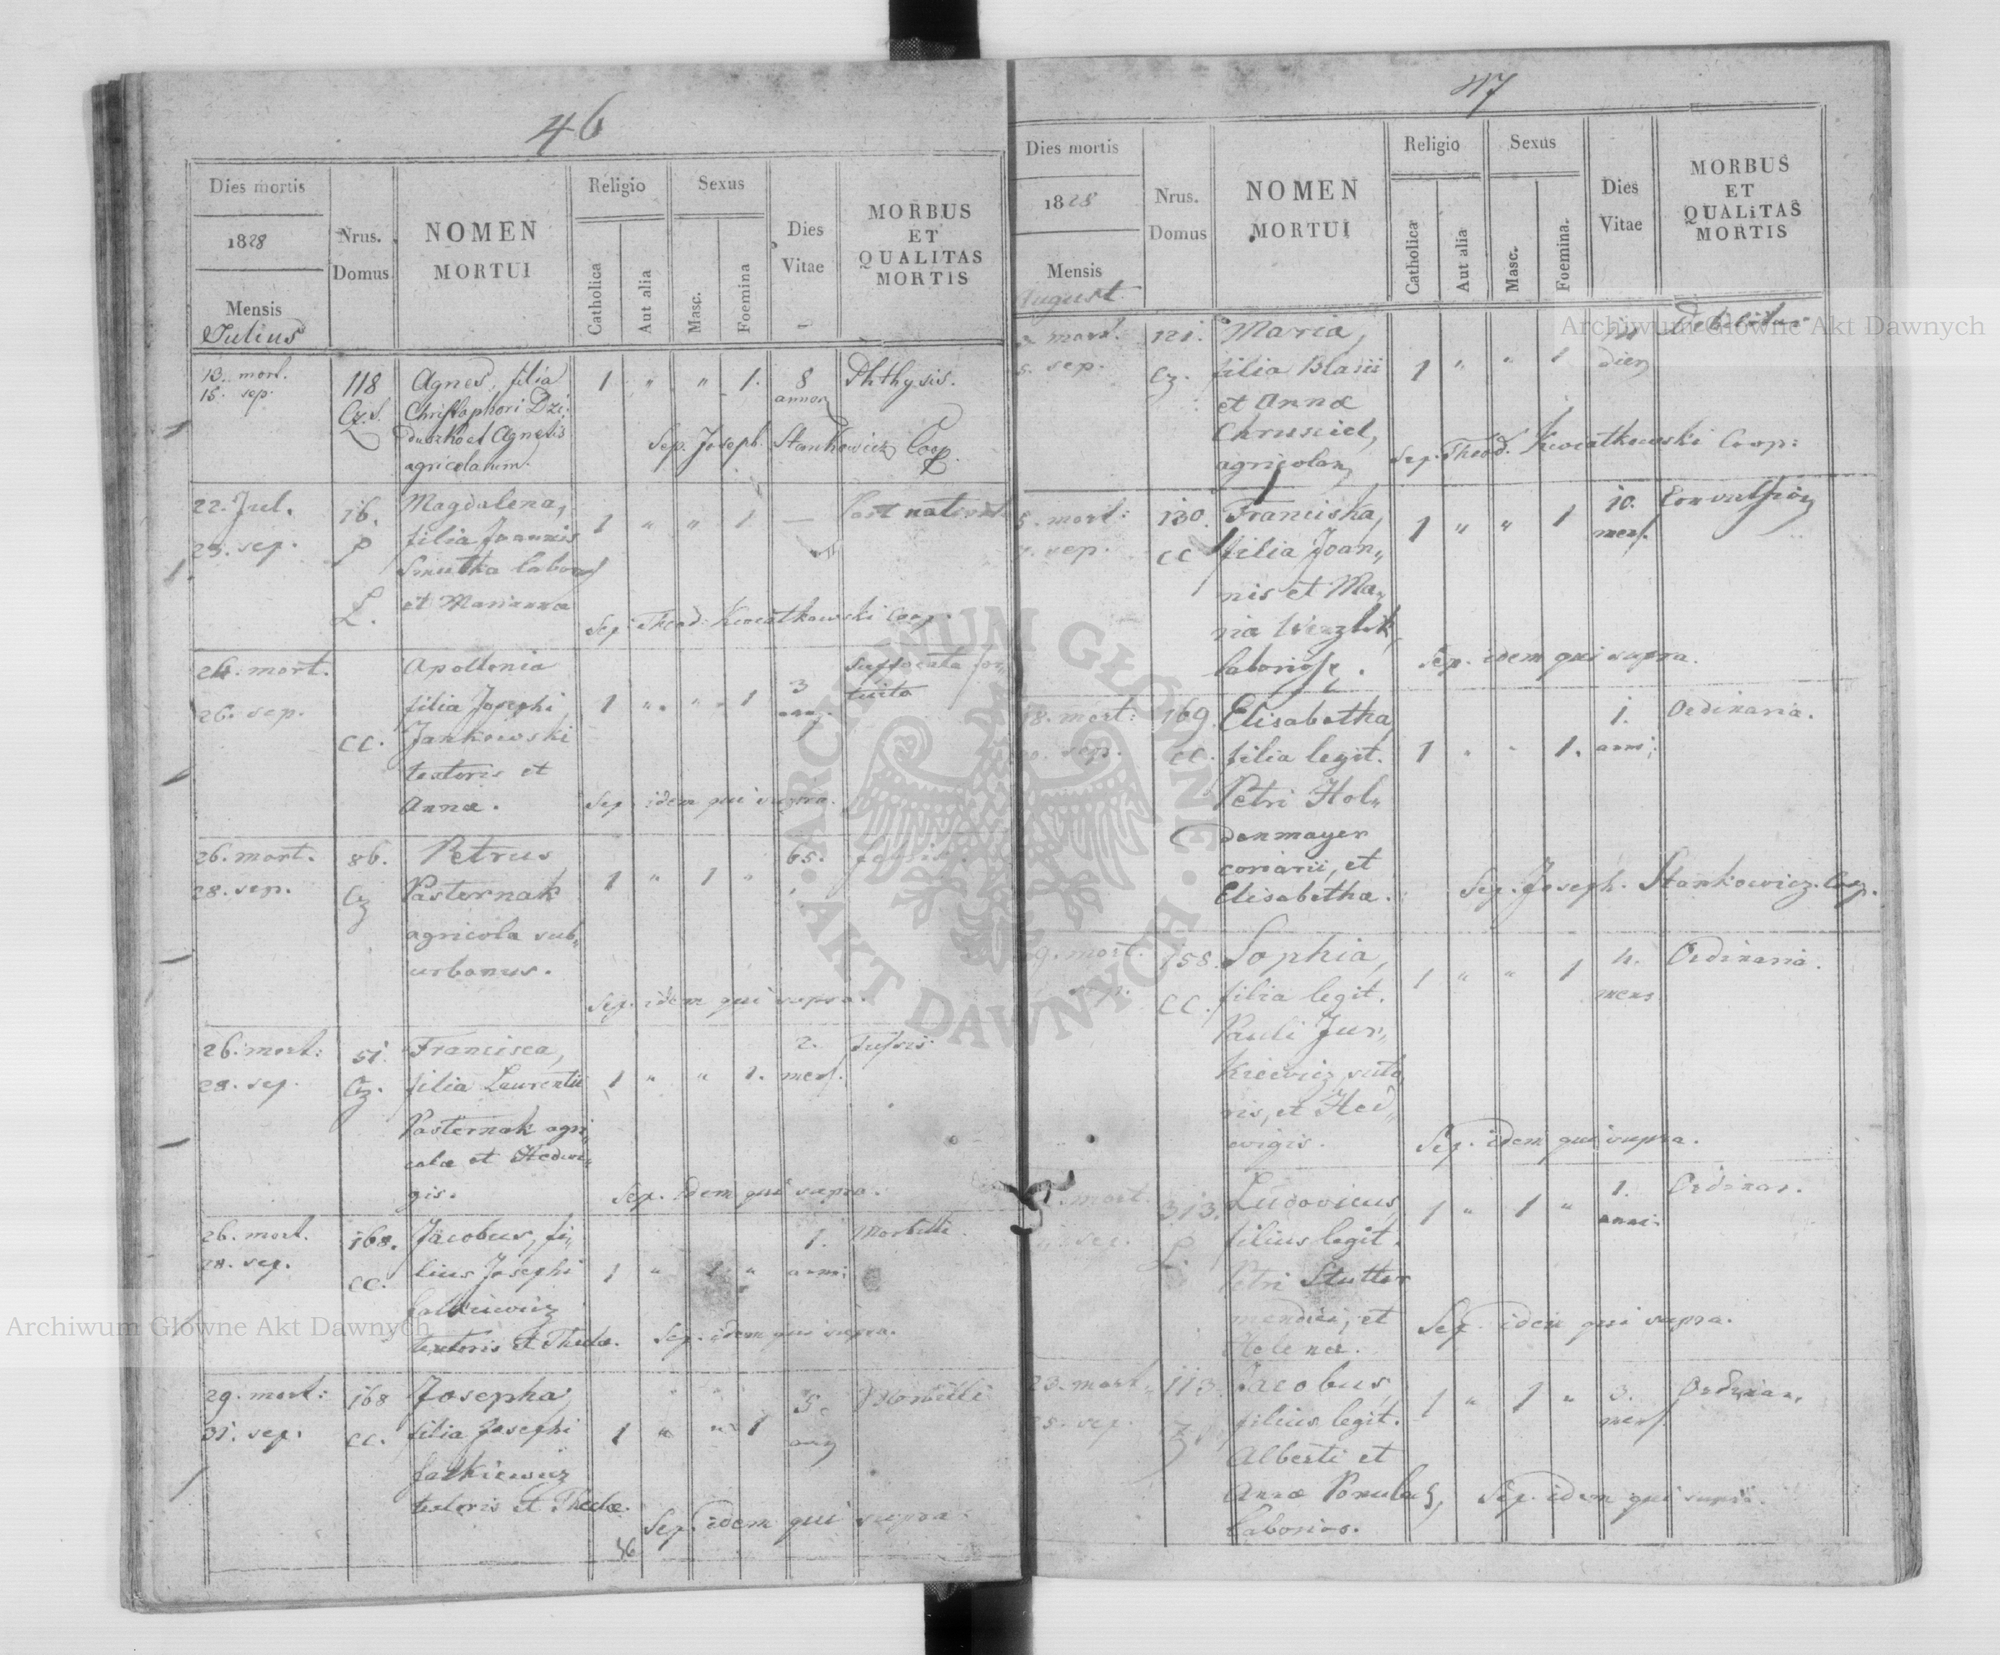 46
Dies mortis
1828
Mensis
Julius
Nrus.
Domus
NOMEN
MORTUI
Religio
Catholica
Aut alia
Sexus
Masc.
Foemina
Dies
Vitae
MORBUS
ET
QUALITAS
MORTIS
13. mort.
15. sep.
118
Agnes, filia
Christophori Dzi-
et Agnetis
agricolarum.
1 " " 1.
8
annor
Phthysis.
Sep. Joseph. Stankowicz Coop.
22. Jul.
23. sep.
16.
P
L.
Magdalena,
filia Joannis
Smutka labor
et Marianna
1 " " 1 —
Post nativit
Sep. Theod. Kwiatkowski Coop.
24. mort.
26. sep.
CC.
Apollonia
filia Josephi
Jankowski
textoris et
Annae.
1 " " 1
3
ann.
suffocata for
tuito
Sep. idem qui supra.
26. mort.
28. sep.
86.
Cz
Petrus
Pasternak
agricola sub,,
urbanus.
1 " 1 "
65.
Sep. idem qui supra.
26. mort:
28. sep.
51.
Cz.
Francisca,
filia Laurentii
Pasternak agri,,
colae et Hedwi,,
gis.
1 " " 1.
2.
mens.
Tussis
Sep. idem qui supra.
26. mort.
28. sep.
168.
CC.
Jacobus, fi,,
lius Josephi
textoris et Theclae.
1 " 1 "
1.
anni
Morbilli
Sep. idem qui supra.
29. mort:
31. sep.
168
CC.
Josepha,
filia Josephi
textoris et Theclae.
1 " " 1
3
Morbilli
Sep. idem qui supra.
36
47
Dies mortis
1828
Mensis
August
Nrus.
Domus
NOMEN
MORTUI
Religio
Catholica
Aut alia
Sexus
Masc.
Foemina.
Dies
Vitae
MORBUS
ET
QUALITAS
MORTIS
mort.
5. sep.
121.
Cz.
Maria,
filia Blasii
et Annae
Chrusciel,
agricolar
1 " " 1
dier
Debilitas
Sep. Theod. Kwiatkowski Coop:
5. mort:
7. sep.
130.
CC
Franciska,
filia Joan,,
nis et Ma,,
ria
laborios.
1 " " 1
10.
mens.
Convulsion
Sep. idem qui supra.
18. mort:
20. sep.
169.
CC.
Elisabetha,
filia legit.
Petri Hol,,
denmayer
coriarii, et
Elisabethae.
1 " " 1.
1.
anni.
Ordinaria.
Sep. Joseph. Stankowicz. Coop.
mort.
sep.
158.
CC.
Sophia,
filia legit.
Pauli Jur,,
kiewicz suto,,
ris, et Hed,,
wigis.
1 " " 1
4.
mens
Ordinaria.
Sep. idem qui supra.
mort.
sep.
313.
L.
Ludovicus,
filius legit.
Petri Stutter
mendici, et
Helenae.
1 " 1 "
1.
anni.
Ordinar.
Sep. idem qui supra.
23. mort.
25. sep.
113.
Z.
Jacobus,
filius legit.
Alberti et
Annae
laborios.
1 " 1 "
3.
mens.
Ordinar.
Sep. idem qui supra.
ARCHIWUM GŁÓWNE AKT DAWNYCH
Archiwum Główne Akt Dawnych
Archiwum Główne Akt Dawnych